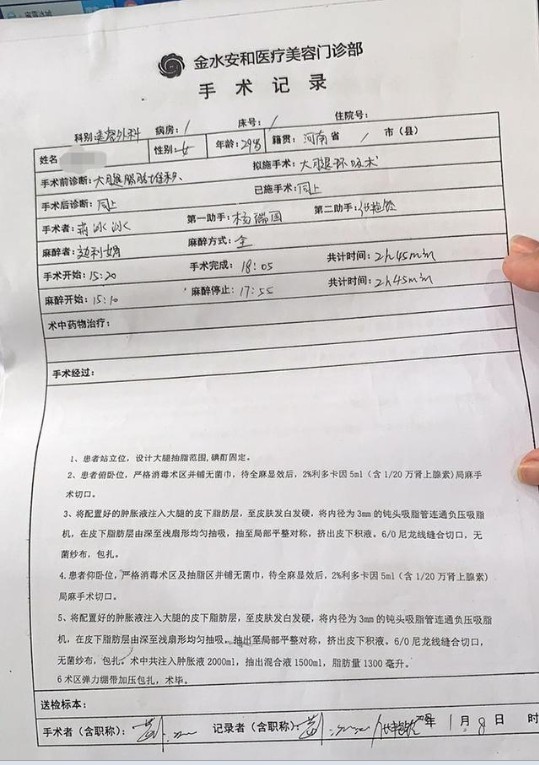 金水安和医疗美容门诊部
手术记录
科别 美容外科 病房: / 床号: / 住院号:
姓名 性别: 女 年龄: 29岁 籍贯: 河南 省 / 市(县)
手术前诊断: 大腿脂肪堆积 拟施手术: 大腿环吸术
手术后诊断: 同上 已施手术: 同上
手术者: 冰冰 第一助手: 杨瑞国 第二助手:
麻醉者: 利娟 麻醉方式: 全
手术开始: 15:20 手术完成: 18:05 共计时间: 2h45min
麻醉开始: 15:10 麻醉停止: 17:55 共计时间: 2h45min
术中药物治疗:
手术经过:
1、患者站立位,设计大腿抽脂范围,碘酊固定。
2、患者俯卧位,严格消毒术区并铺无菌巾,待全麻显效后,2%利多卡因5ml(含1/20万肾上腺素)局麻手
术切口。
3、将配置好的肿胀液注入大腿的皮下脂肪层,至皮肤发白发硬,将内径为3mm的钝头吸脂管连通负压吸脂
机,在皮下脂肪层由深至浅扇形均匀抽吸,抽至局部平整对称,挤出皮下积液。6/0尼龙线缝合切口,无
菌纱布,包扎。
4.患者仰卧位,严格消毒术区及抽脂区并铺无菌巾,待全麻显效后,2%利多卡因5ml(含1/20万肾上腺素)
局麻手术切口。
5、将配置好的肿胀液注入大腿的皮下脂肪层,至皮肤发白发硬,将内径为3mm的钝头吸脂管连通负压吸脂
机,在皮下脂肪层由深至浅扇形均匀抽吸,抽出至局部平整对称,挤出皮下积液。6/0尼龙线缝合切口,
无菌纱布,包扎。术中共注入肿胀液2000ml,抽出混合液1500ml,脂肪量1300毫升。
6术区弹力绷带加压包扎,术毕。
送检标本:
手术者(含职称): 记录者(含职称): 年 1 月 8 日 时